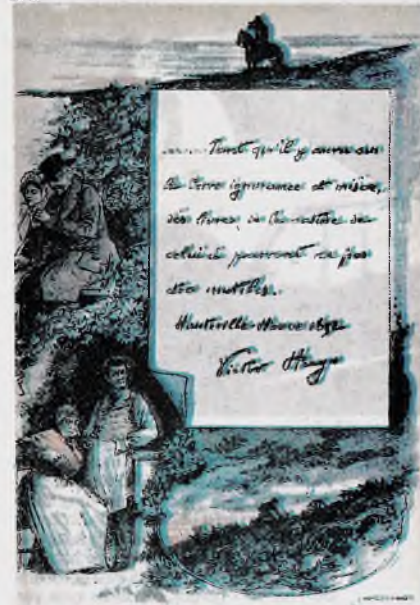 ...... Tant qu'il y aura sur
la terre ignorance et misère,
des livres de la nature de
celui-ci pourront ne pas
être inutiles.
Hauteville House 1862
Victor Hugo